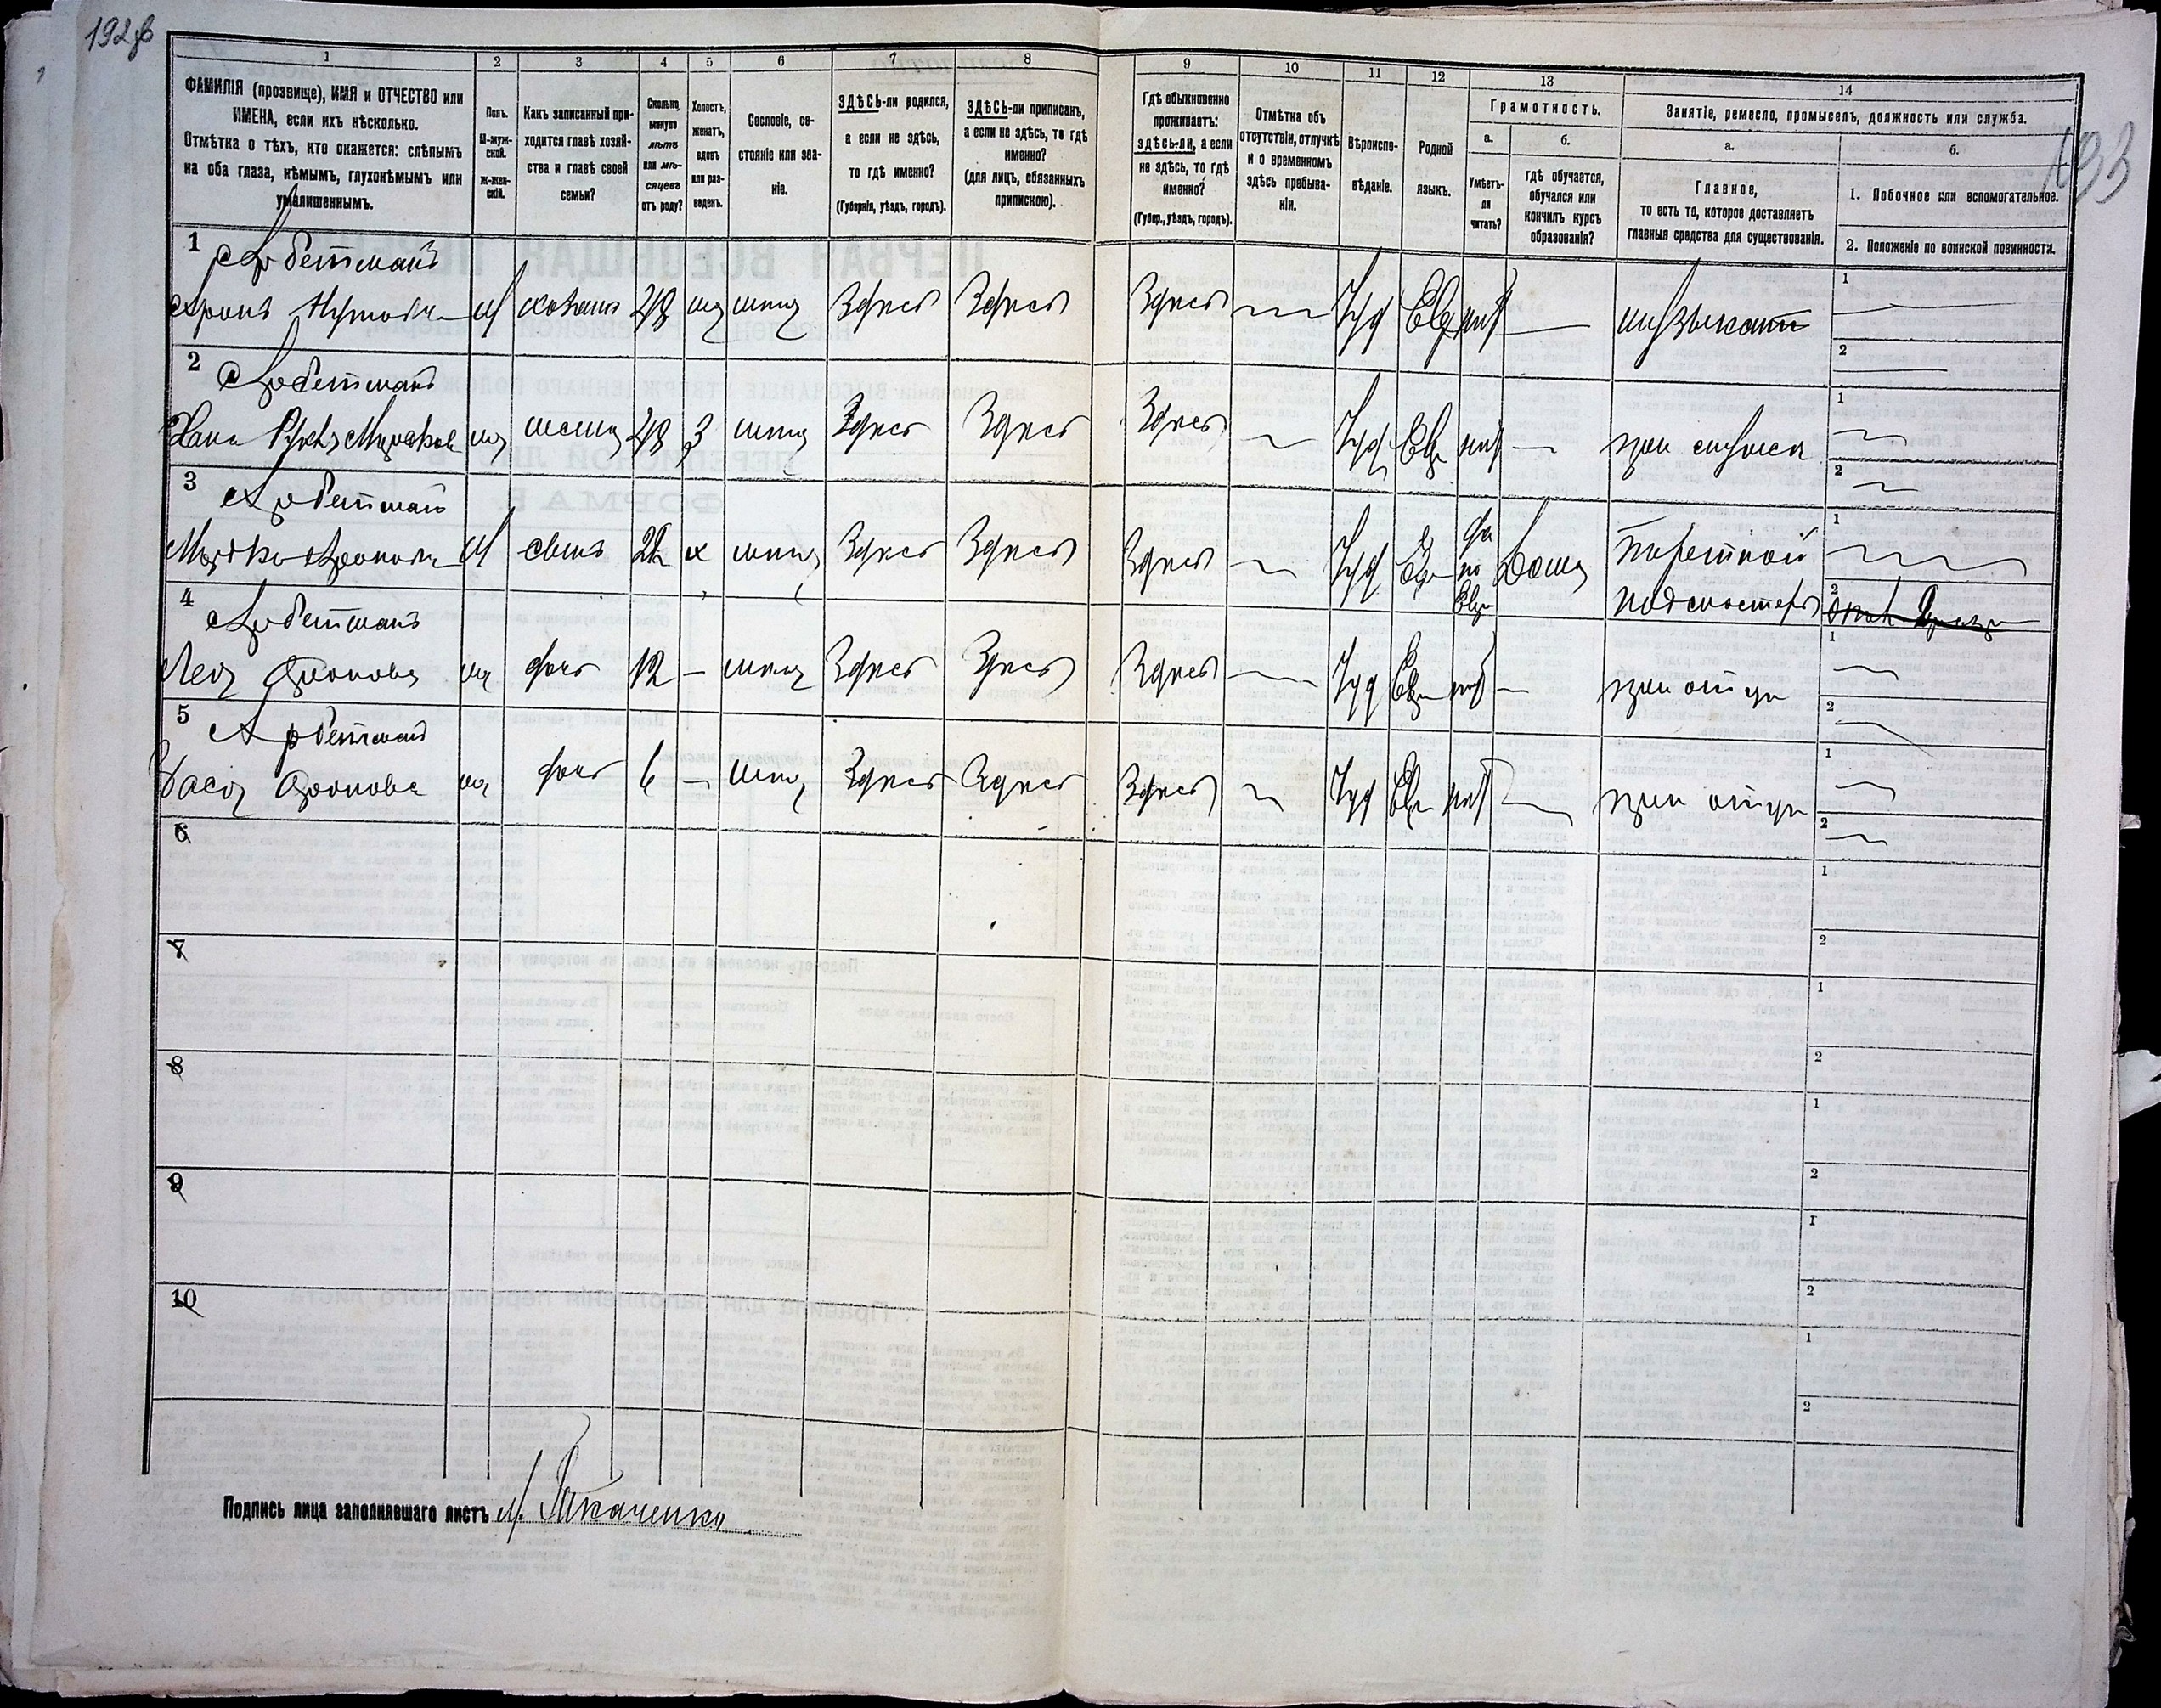 192 об
193
1 2 3 4 5 6 7 8 9 10 11 12 13 14
ФАМИЛІЯ (прозвище), ИМЯ и ОТЧЕСТВО или ИМЕНА, если ихъ нѣсколько.
Отмѣтка о тѣхъ, кто окажется: слѣпымъ на оба глаза, нѣмымъ, глухонѣмымъ или умалишеннымъ.
Полъ. М-мужской. Ж-женскій.
Какъ записанный приходится главѣ хозяйства и главѣ своей семьи?
Сколько минуло лѣтъ или мѣсяцевъ отъ роду?
Холостъ, женатъ, вдовъ или разведенъ.
Сословіе, состояніе или званіе.
ЗДѢСЬ-ли родился, а если не здѣсь, то гдѣ именно?
(Губернія, уѣздъ, городъ).
ЗДѢСЬ-ли приписанъ, а если не здѣсь, то гдѣ именно?
(для лицъ, обязанныхъ припискою).
Гдѣ обыкновенно проживаетъ: здѣсь-ли, а если не здѣсь, то гдѣ именно?
(Губер., уѣздъ, городъ).
Отмѣтка объ отсутствіи, отлучкѣ и о временномъ здѣсь пребываніи.
Вѣроисповѣданіе.
Родной языкъ.
Грамотность.
а. Умѣетъ-ли читать?
б. гдѣ обучается, обучался или кончилъ курсъ образованія?
Занятіе, ремесло, промыселъ, должность или служба.
а. Главное, то есть то, которое доставляетъ главныя средства для существованія.
б.
1. Побочное или вспомогательное.
2. Положеніе по воинской повинности.
1 Арбетманъ
Аронъ М хозяинъ 48 ж мѣщ Здѣсь Здѣсь Здѣсь — Іуд Евр нѣт — музыкант
1 —
2 —
2 Арбетманъ
Хана ж жена 48 З мѣщ Здѣсь Здѣсь Здѣсь — Іуд Евр нѣт — при мужѣ
1 —
2 —
3 Арбетманъ
Мордко Ароновъ М сынъ 22 х мѣщ Здѣсь Здѣсь Здѣсь — Іуд Евр да по Евр Дома Портной
подмастер
1 —
2
4 Арбетманъ
Лея Аронова ж дочь 12 — мѣщ Здѣсь Здѣсь Здѣсь — Іуд Евр нѣт — при отцѣ
1 —
2 —
5 Арбетманъ
Бася Аронова ж дочь 6 — мѣщ Здѣсь Здѣсь Здѣсь — Іуд Евр нѣт — при отцѣ
1 —
2 —
6 1 2
7 1 2
8 1 2
9 1 2
10 1 2
Подпись лица заполнявшаго листъ М. Ткаченко